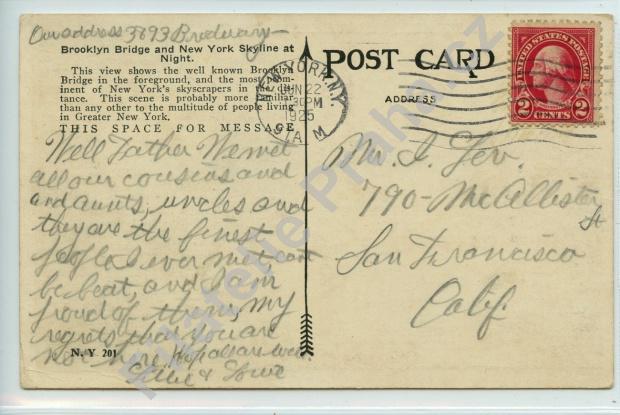 Our address 3693 Broadway
Brooklyn Bridge and New York Skyline at
Night.
This view shows the well known Brooklyn
Bridge in the foreground, and the most prom-
inent of New York's skyscrapers in the dis-
tance. This scene is probably more familiar
than any other to the multitude of people living
in Greater New York.
THIS SPACE FOR MESSAGE
Well Father We met
all our cousins and
and aunts, uncles and
they are the finest
I ever met can't
be beat, and I am
proud of them, my
regrets that you are
not here. Hope all are well
N. Y 201
POST CARD
ADDRESS
NEW YORK, N.Y.
JUN 22
30PM
1925
STA. M
UNITED STATES POSTAGE
2 CENTS 2
Mr. I. Lev.
790 - McAllister
St
San Francisco
Calif.
Filatelie Praha.cz